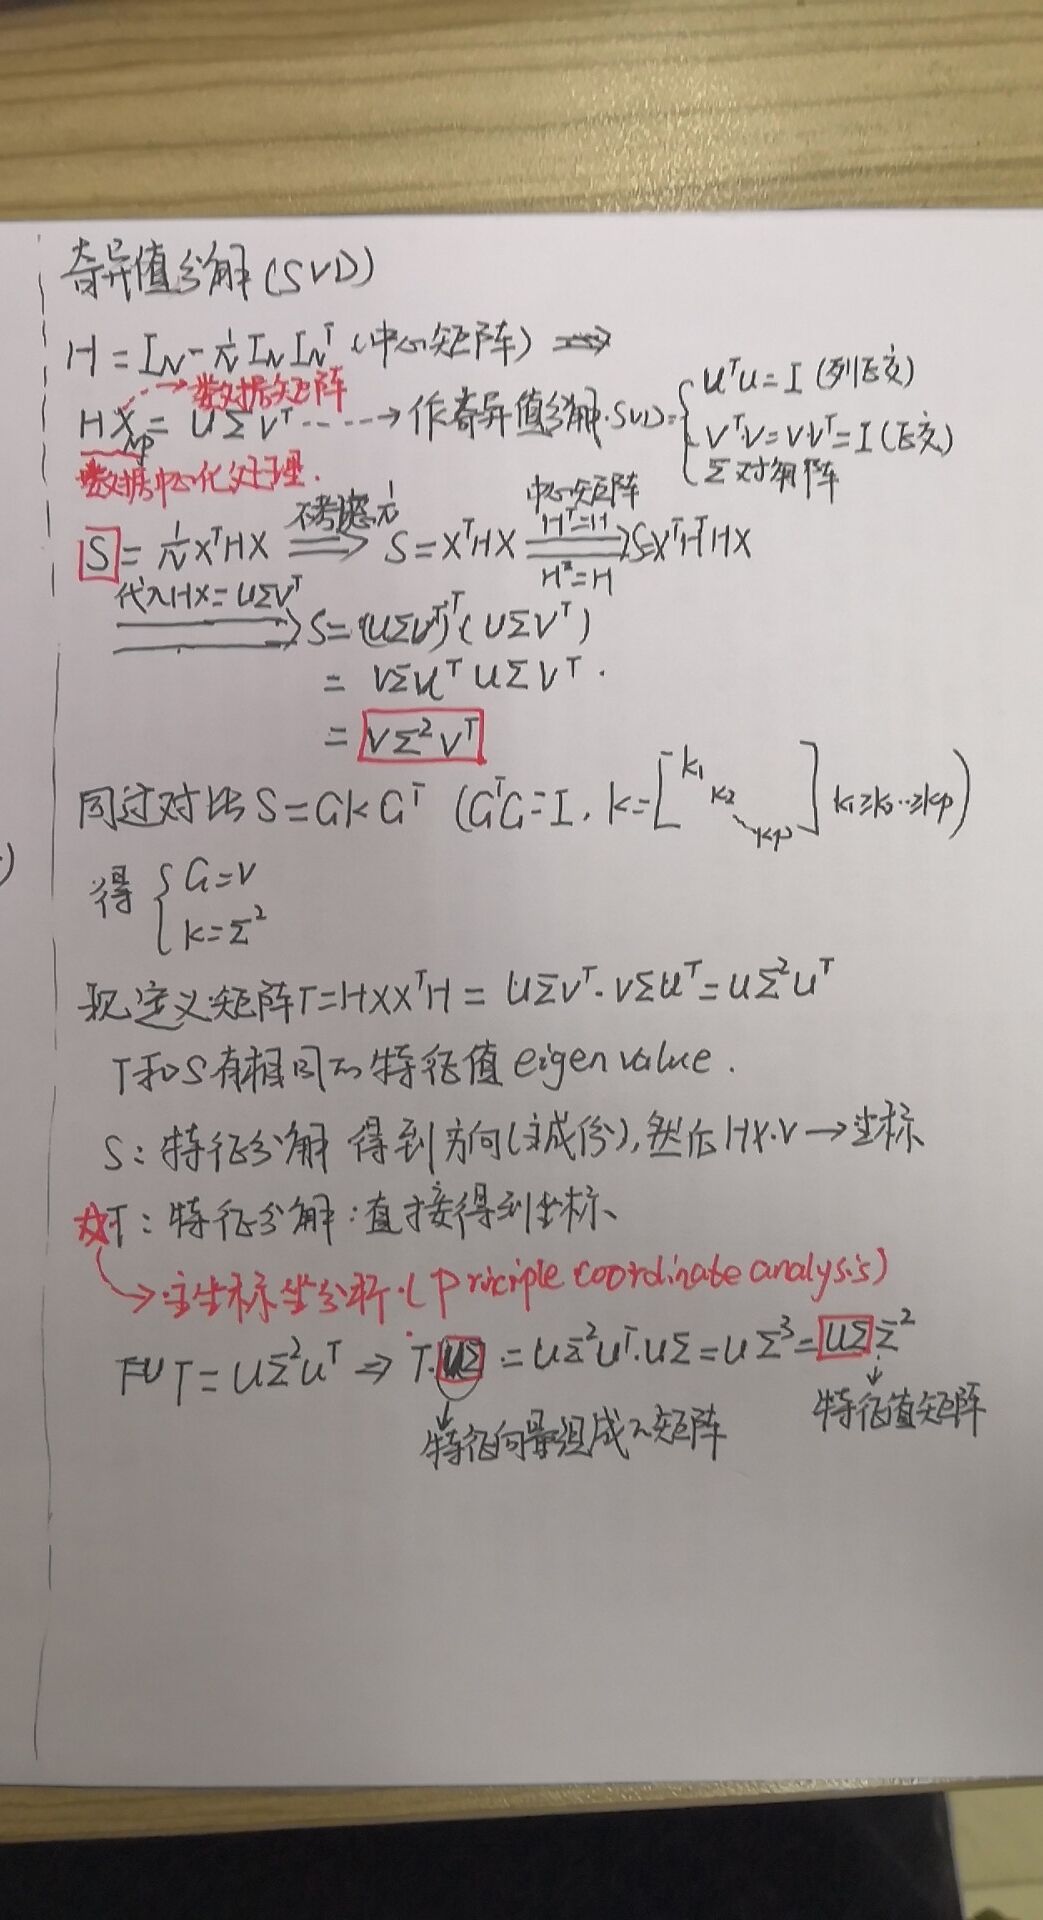 奇异值分解(SVD)
H = I_N - 1/N I_N I_N^T (中心矩阵) ⟹
数据矩阵
HX_{N×p} = UΣV^T ⇢ 作奇异值分解. SVD = { U^TU = I (列正交)
V^T·V = V·V^T = I (正交)
Σ 对角阵
数据中心化处理.
S = 1/N X^THX ⟹(不考虑 1/N) S = X^THX ⟹(中心矩阵 H^T=H H^2=H) S=X^TH^THX
代入HX=UΣV^T
⟹ S = (UΣV^T)^T (UΣV^T)
= VΣU^T UΣV^T.
= VΣ^2V^T
同过对比 S = GKG^T (G^TG=I, K=[k1 k2 ⋱ kp] k1≥k2…≥kp)
得 { G=V
K=Σ^2
现定义矩阵T=HXX^TH = UΣV^T·VΣU^T=UΣ^2U^T
T和S有相同的特征值 eigen value.
S: 特征分解 得到方向(主成份), 然后HX·V→坐标
☆T: 特征分解: 直接得到坐标、
→主坐标坐分析.(Priciple coordinate analysis)
T = UΣ^2U^T ⇒ T·UΣ = UΣ^2U^T·UΣ = UΣ^3 = UΣΣ^2
特征值矩阵
特征向量组成的矩阵